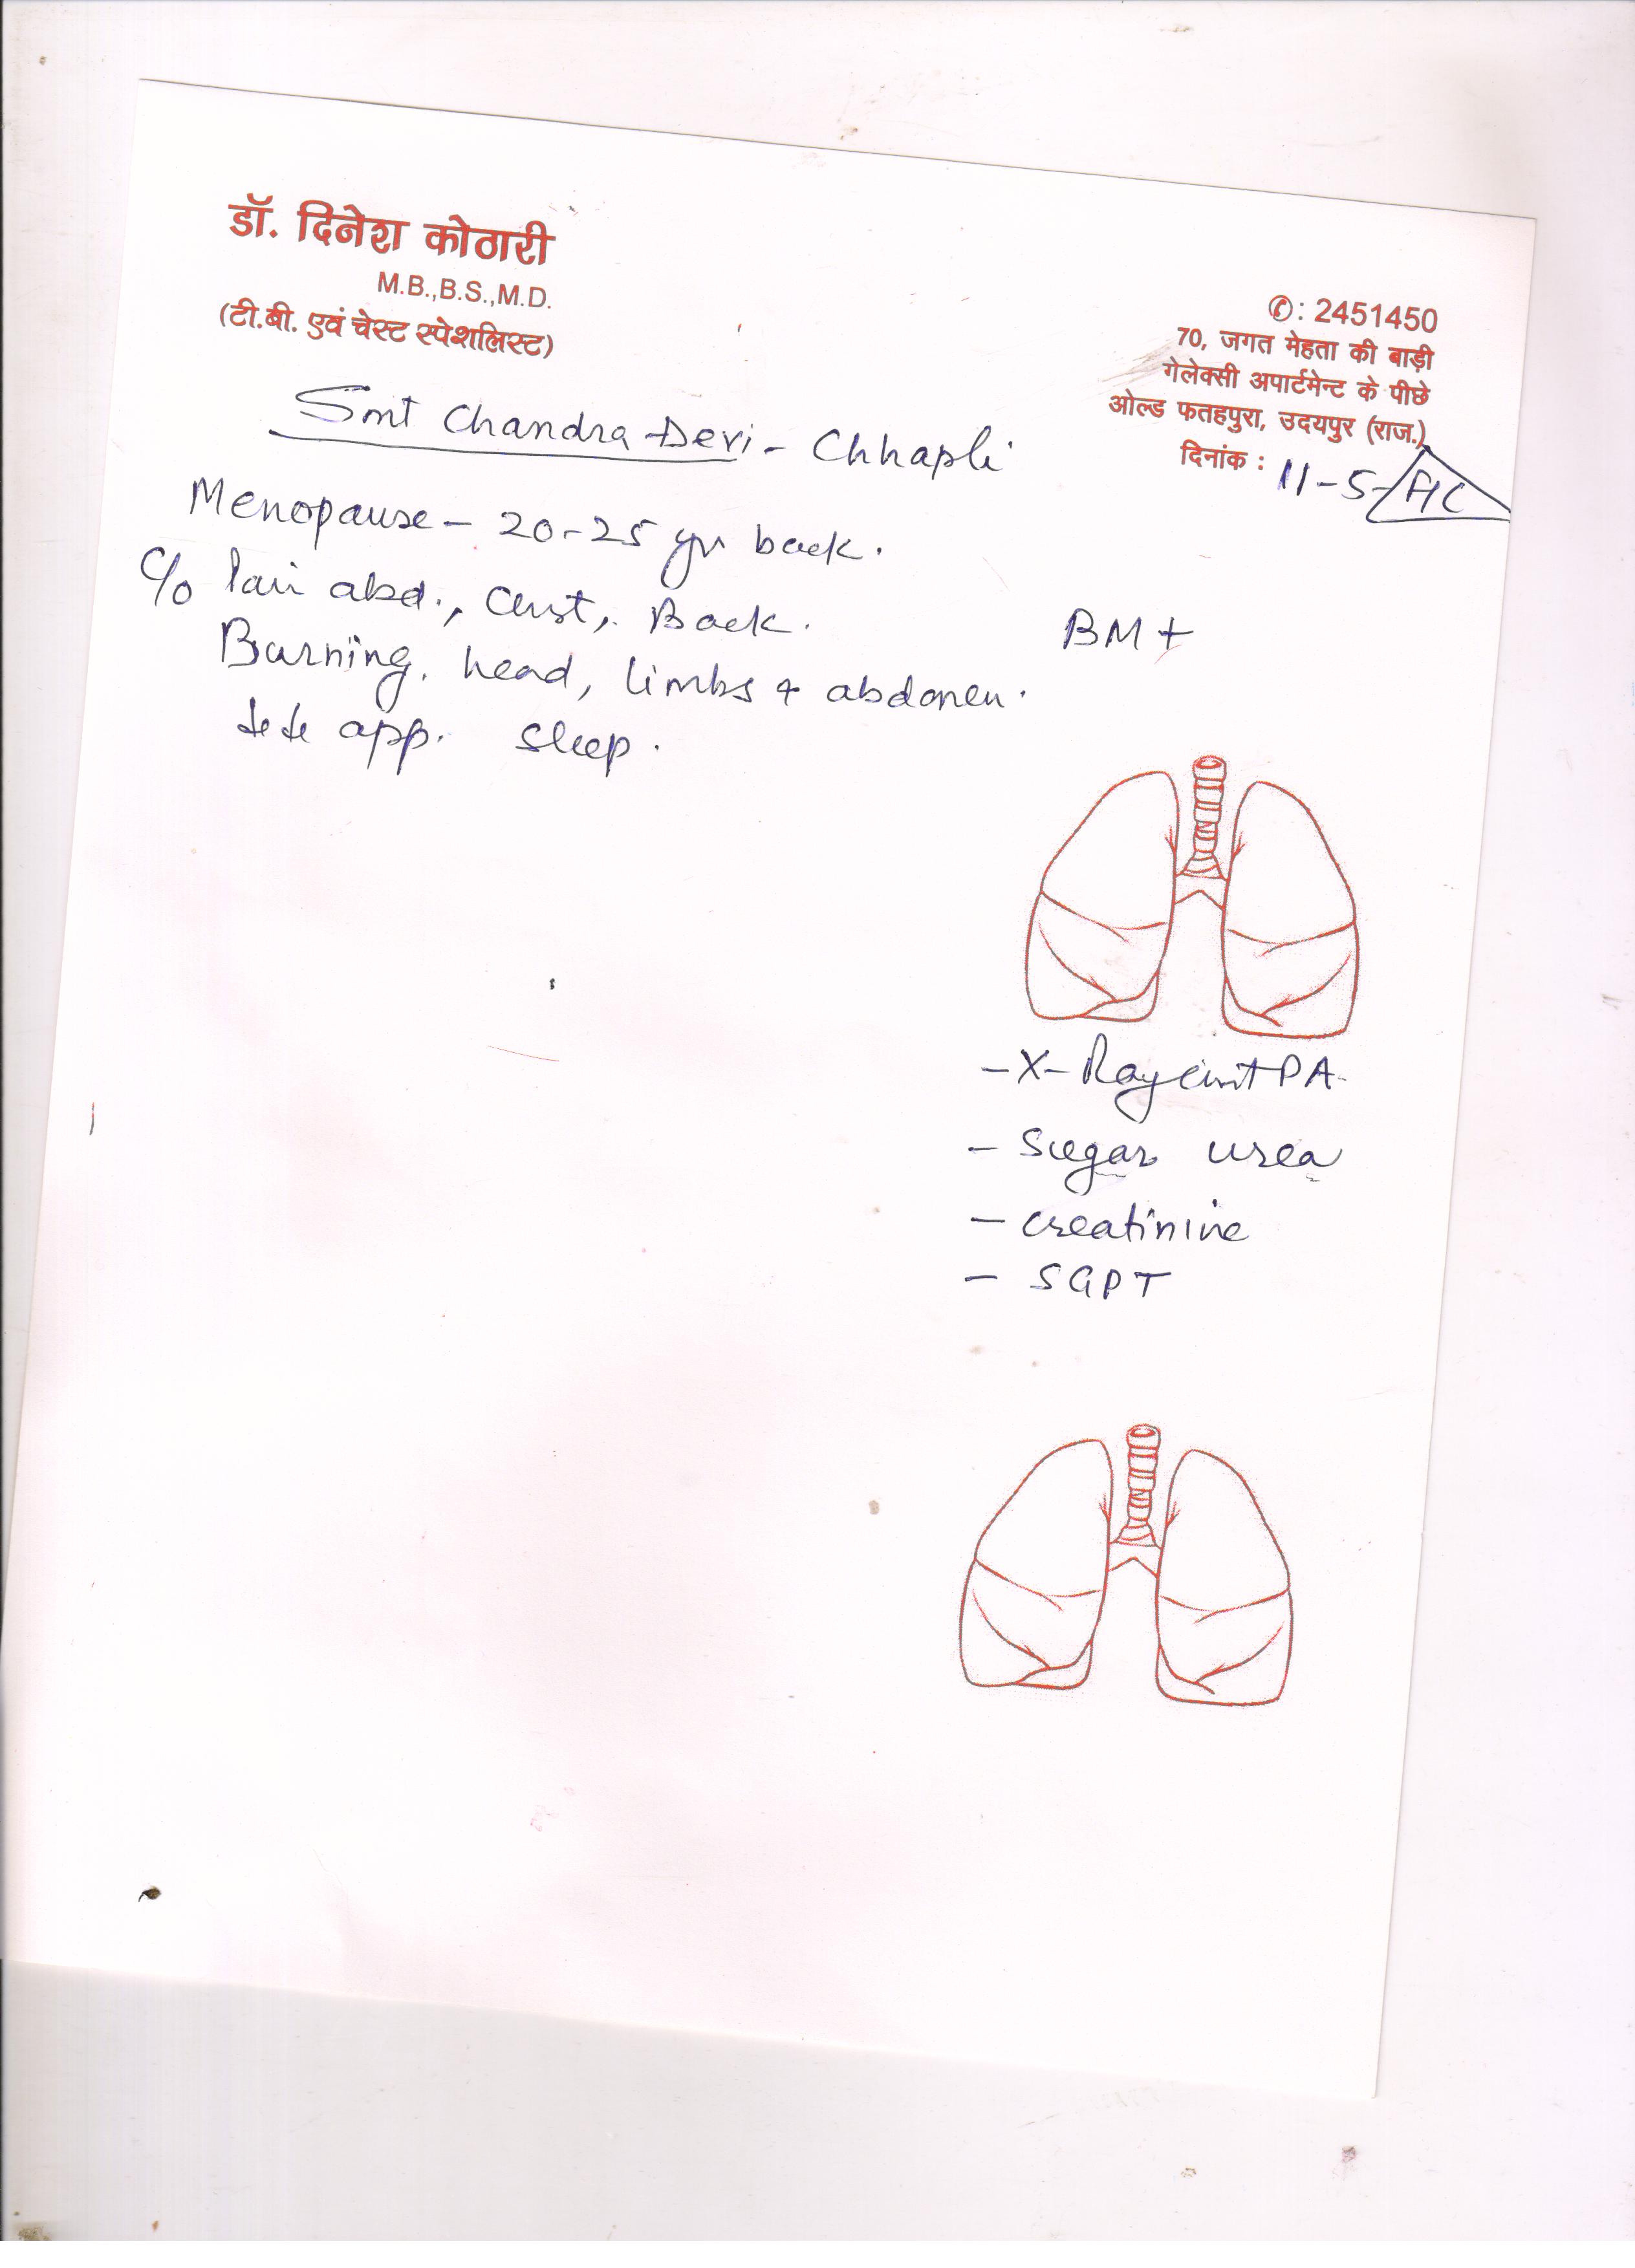 डॉ. दिनेश कोठारी
M.B.,B.S.,M.D.
(टी.बी. एवं चेस्ट स्पेशलिस्ट)
✆: 2451450
70, जगत मेहता की बाड़ी
गेलेक्सी अपार्टमेन्ट के पीछे
ओल्ड फतहपुरा, उदयपुर (राज.)
दिनांक : 11-5-
Smt Chandra Devi - Chhapli
Menopause - 20-25 yr back.
C/o Pain abd., Chest, Back.
BM +
Burning. head, limbs + abdomen.
app. sleep.
- X-Ray chest PA-
- Sugar urea
- creatinine
- SGPT